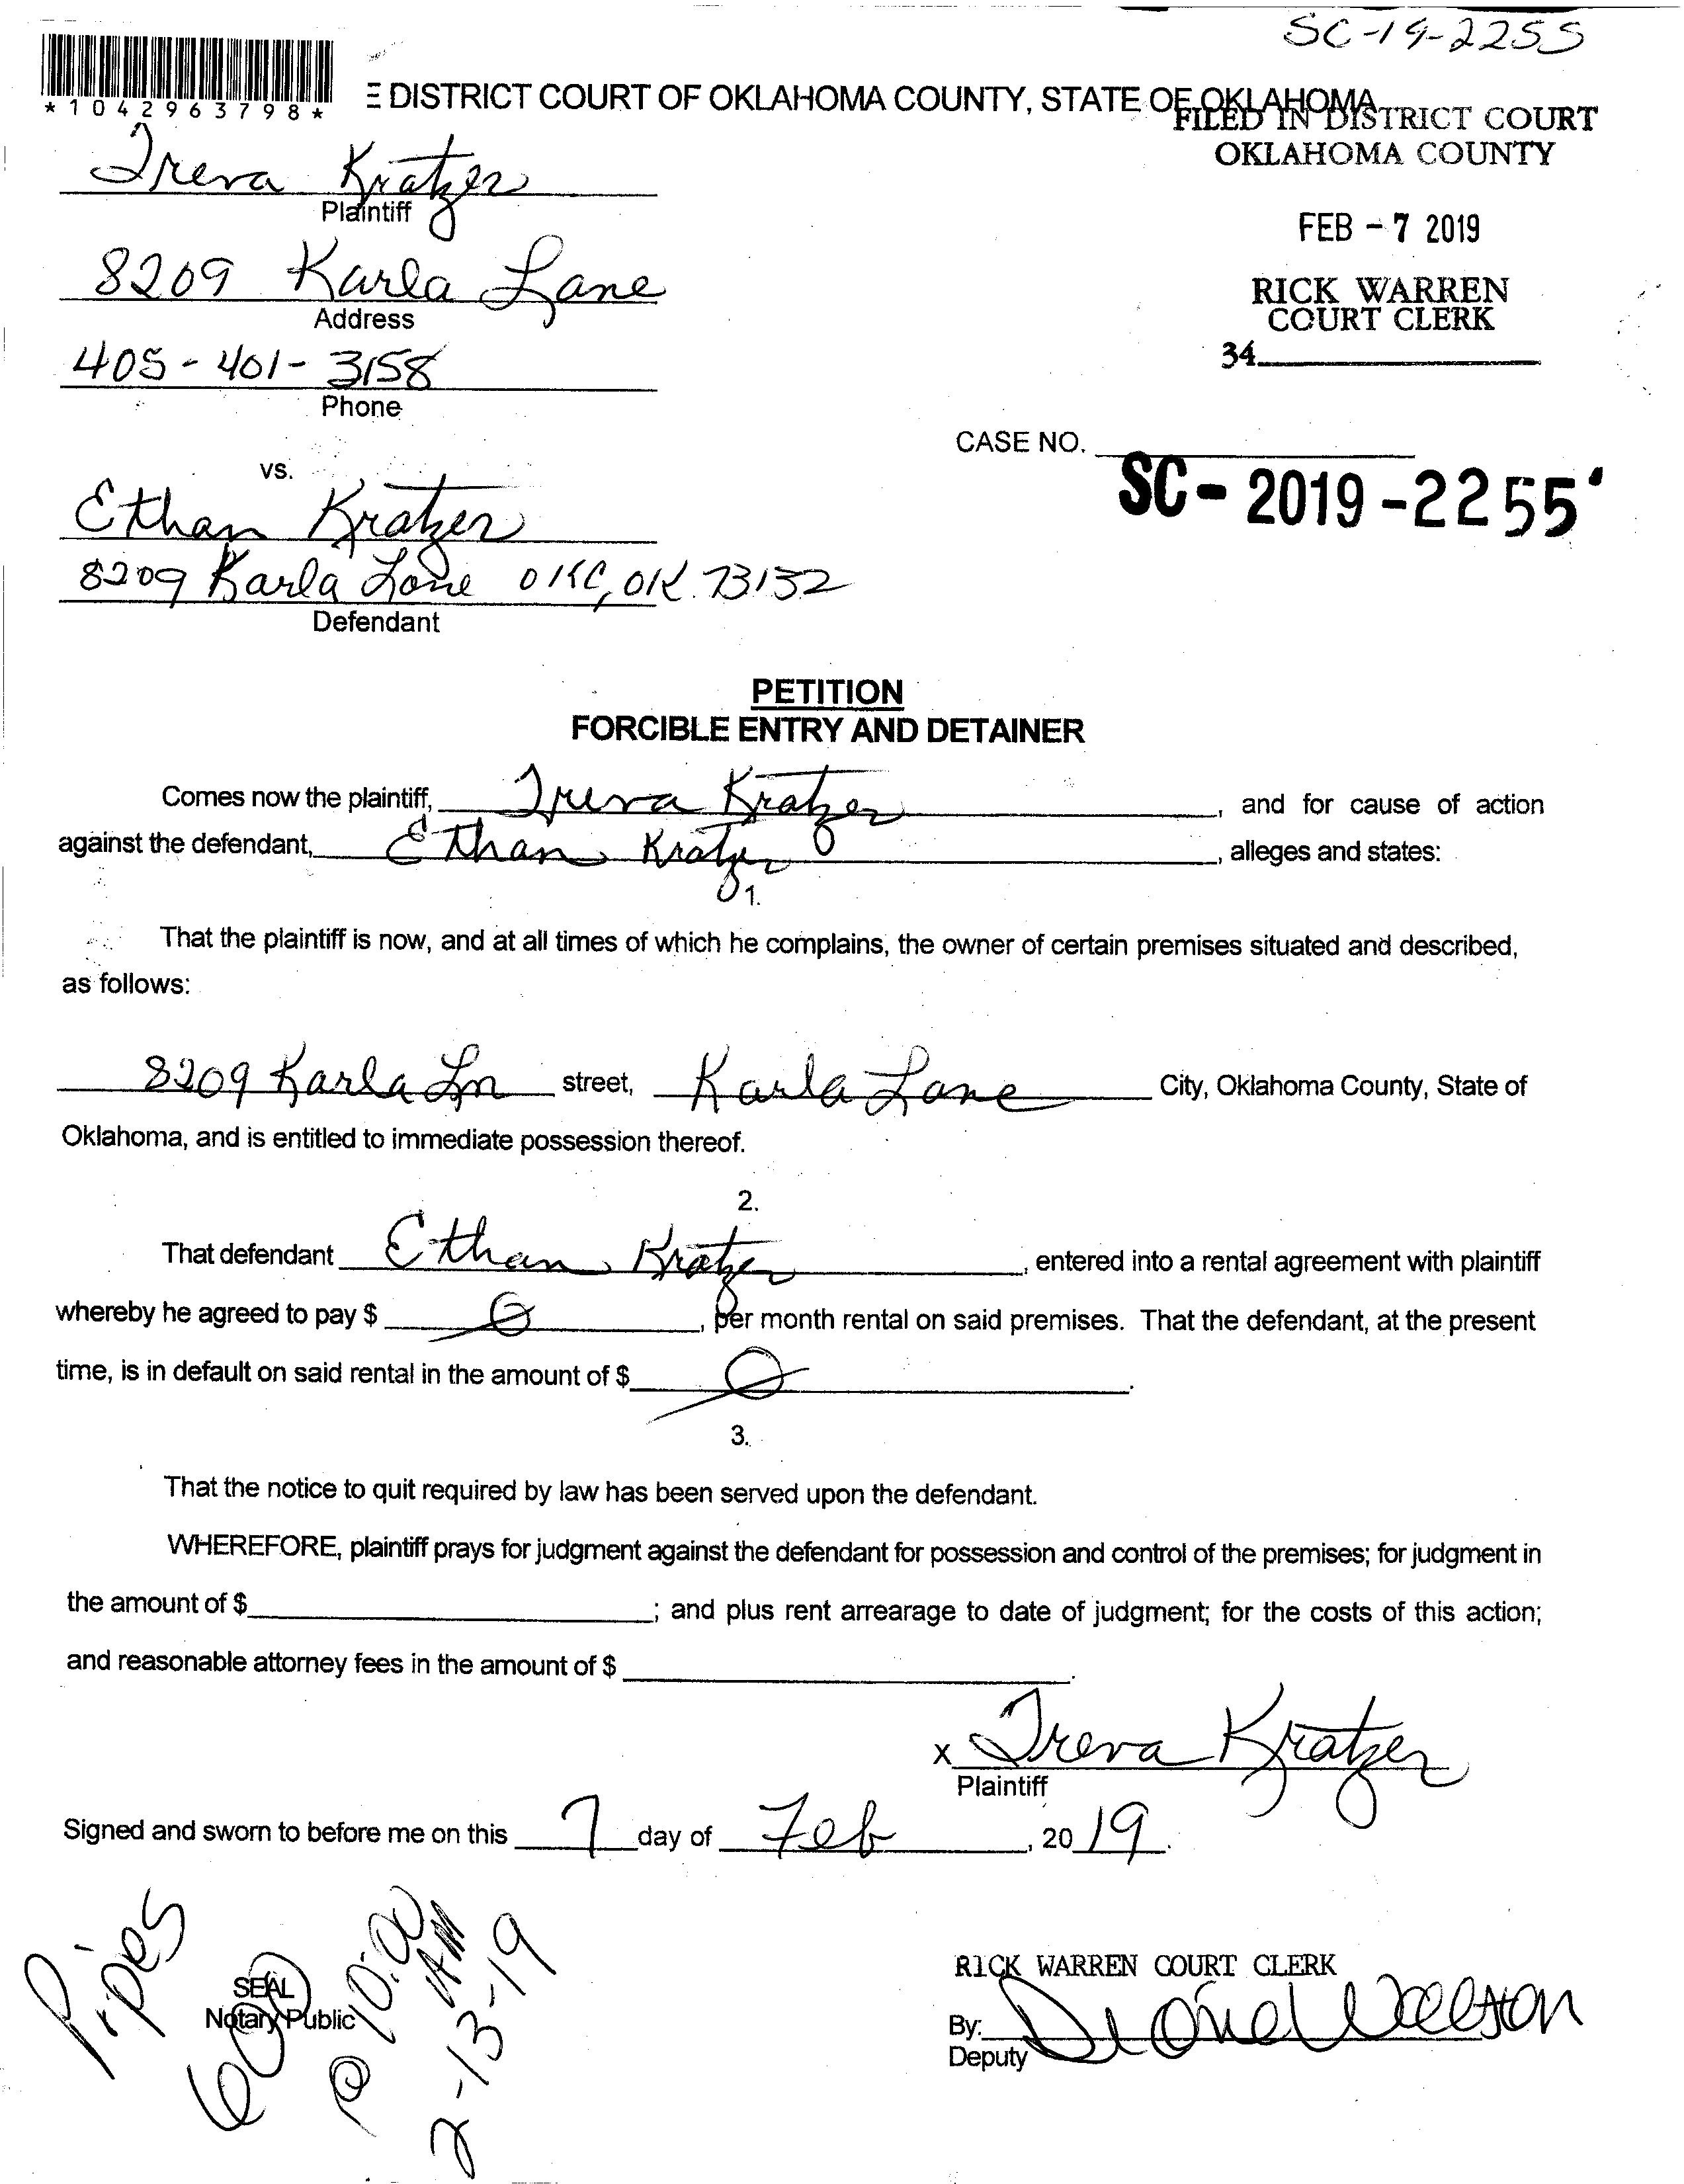 SC-19-2255
*1042963798*
E DISTRICT COURT OF OKLAHOMA COUNTY, STATE OF OKLAHOMA
FILED IN DISTRICT COURT
OKLAHOMA COUNTY
FEB - 7 2019
RICK WARREN
COURT CLERK
34
Treva Kratzer
Plaintiff
8209 Karla Lane
Address
405-401-3158
Phone
CASE NO.
SC-2019-2255
vs.
Ethan Kratzer
8209 Karla Lane OKC, OK. 73132
Defendant
PETITION
FORCIBLE ENTRY AND DETAINER
Comes now the plaintiff, Treva Kratzer, and for cause of action
against the defendant, Ethan Kratzer, alleges and states:
1.
That the plaintiff is now, and at all times of which he complains, the owner of certain premises situated and described,
as follows:
8209 Karla Ln street, Karla Lane City, Oklahoma County, State of
Oklahoma, and is entitled to immediate possession thereof.
2.
That defendant Ethan Kratzer, entered into a rental agreement with plaintiff
whereby he agreed to pay $ 0, per month rental on said premises. That the defendant, at the present
time, is in default on said rental in the amount of $ 0.
3.
That the notice to quit required by law has been served upon the defendant.
WHEREFORE, plaintiff prays for judgment against the defendant for possession and control of the premises; for judgment in
the amount of $; and plus rent arrearage to date of judgment; for the costs of this action;
and reasonable attorney fees in the amount of $.
x Treva Kratzer
Plaintiff
Signed and sworn to before me on this 7 day of Feb, 2019.
Pipes
600
@ 10:00
AM
2-13-19
SEAL
Notary Public
RICK WARREN COURT CLERK
By:
Deputy